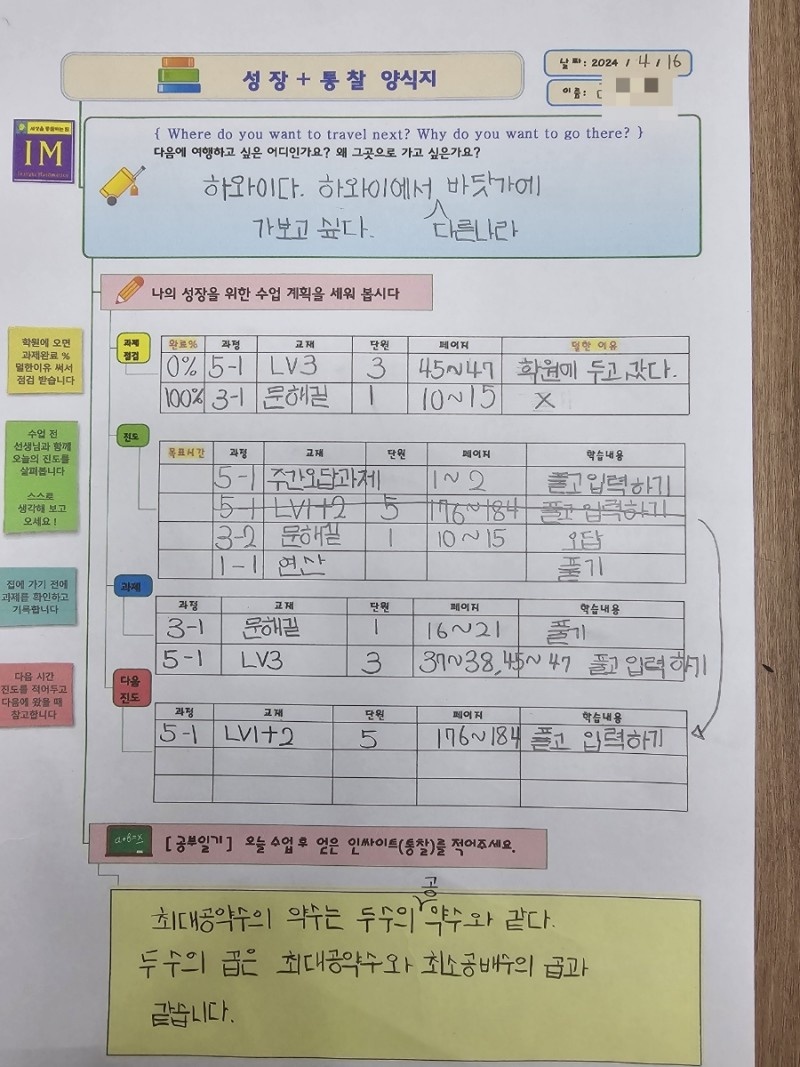 성장 + 통찰 양식지
날짜: 2024 / 4 / 16
이름:
세상을 통찰하는 힘
IM
{ Where do you want to travel next? Why do you want to go there? }
다음에 여행하고 싶은 어디인가요? 왜 그곳으로 가고 싶은가요?
하와이다. 하와이에서 바닷가에
가보고 싶다. 다른나라
나의 성장을 위한 수업 계획을 세워 봅시다
학원에 오면
과제완료 %
덜한이유 써서
점검 받습니다
과제
점검
완료% 과정 교재 단원 페이지 덜한 이유
0% 5-1 LV3 3 45~47 학원에 두고 갔다.
100% 3-1 문해길 1 10~15 X
수업 전
선생님과 함께
오늘의 진도를
살펴봅니다
스스로
생각해 보고
오세요 !
진도
목표시간 과정 교재 단원 페이지 학습내용
5-1 주간오답과제 1~2 풀고 입력하기
5-1 LV1+2 5 176~184 풀고 입력하기
3-2 문해길 1 10~15 오답
1-1 연산 풀기
집에 가기 전에
과제를 확인하고
기록합니다
과제
과정 교재 단원 페이지 학습내용
3-1 문해길 1 16~21 풀기
5-1 LV3 3 37~38, 45~47 풀고 입력하기
다음 시간
진도를 적어두고
다음에 왔을 때
참고합니다
다음
진도
과정 교재 단원 페이지 학습내용
5-1 LV1+2 5 176~184 풀고 입력하기
a+b=x
[ 공부일기 ] 오늘 수업 후 얻은 인싸이트(통찰)를 적어주세요.
공
최대공약수의 약수는 두수의 약수와 같다.
두 수의 곱은 최대공약수와 최소공배수의 곱과
같습니다.